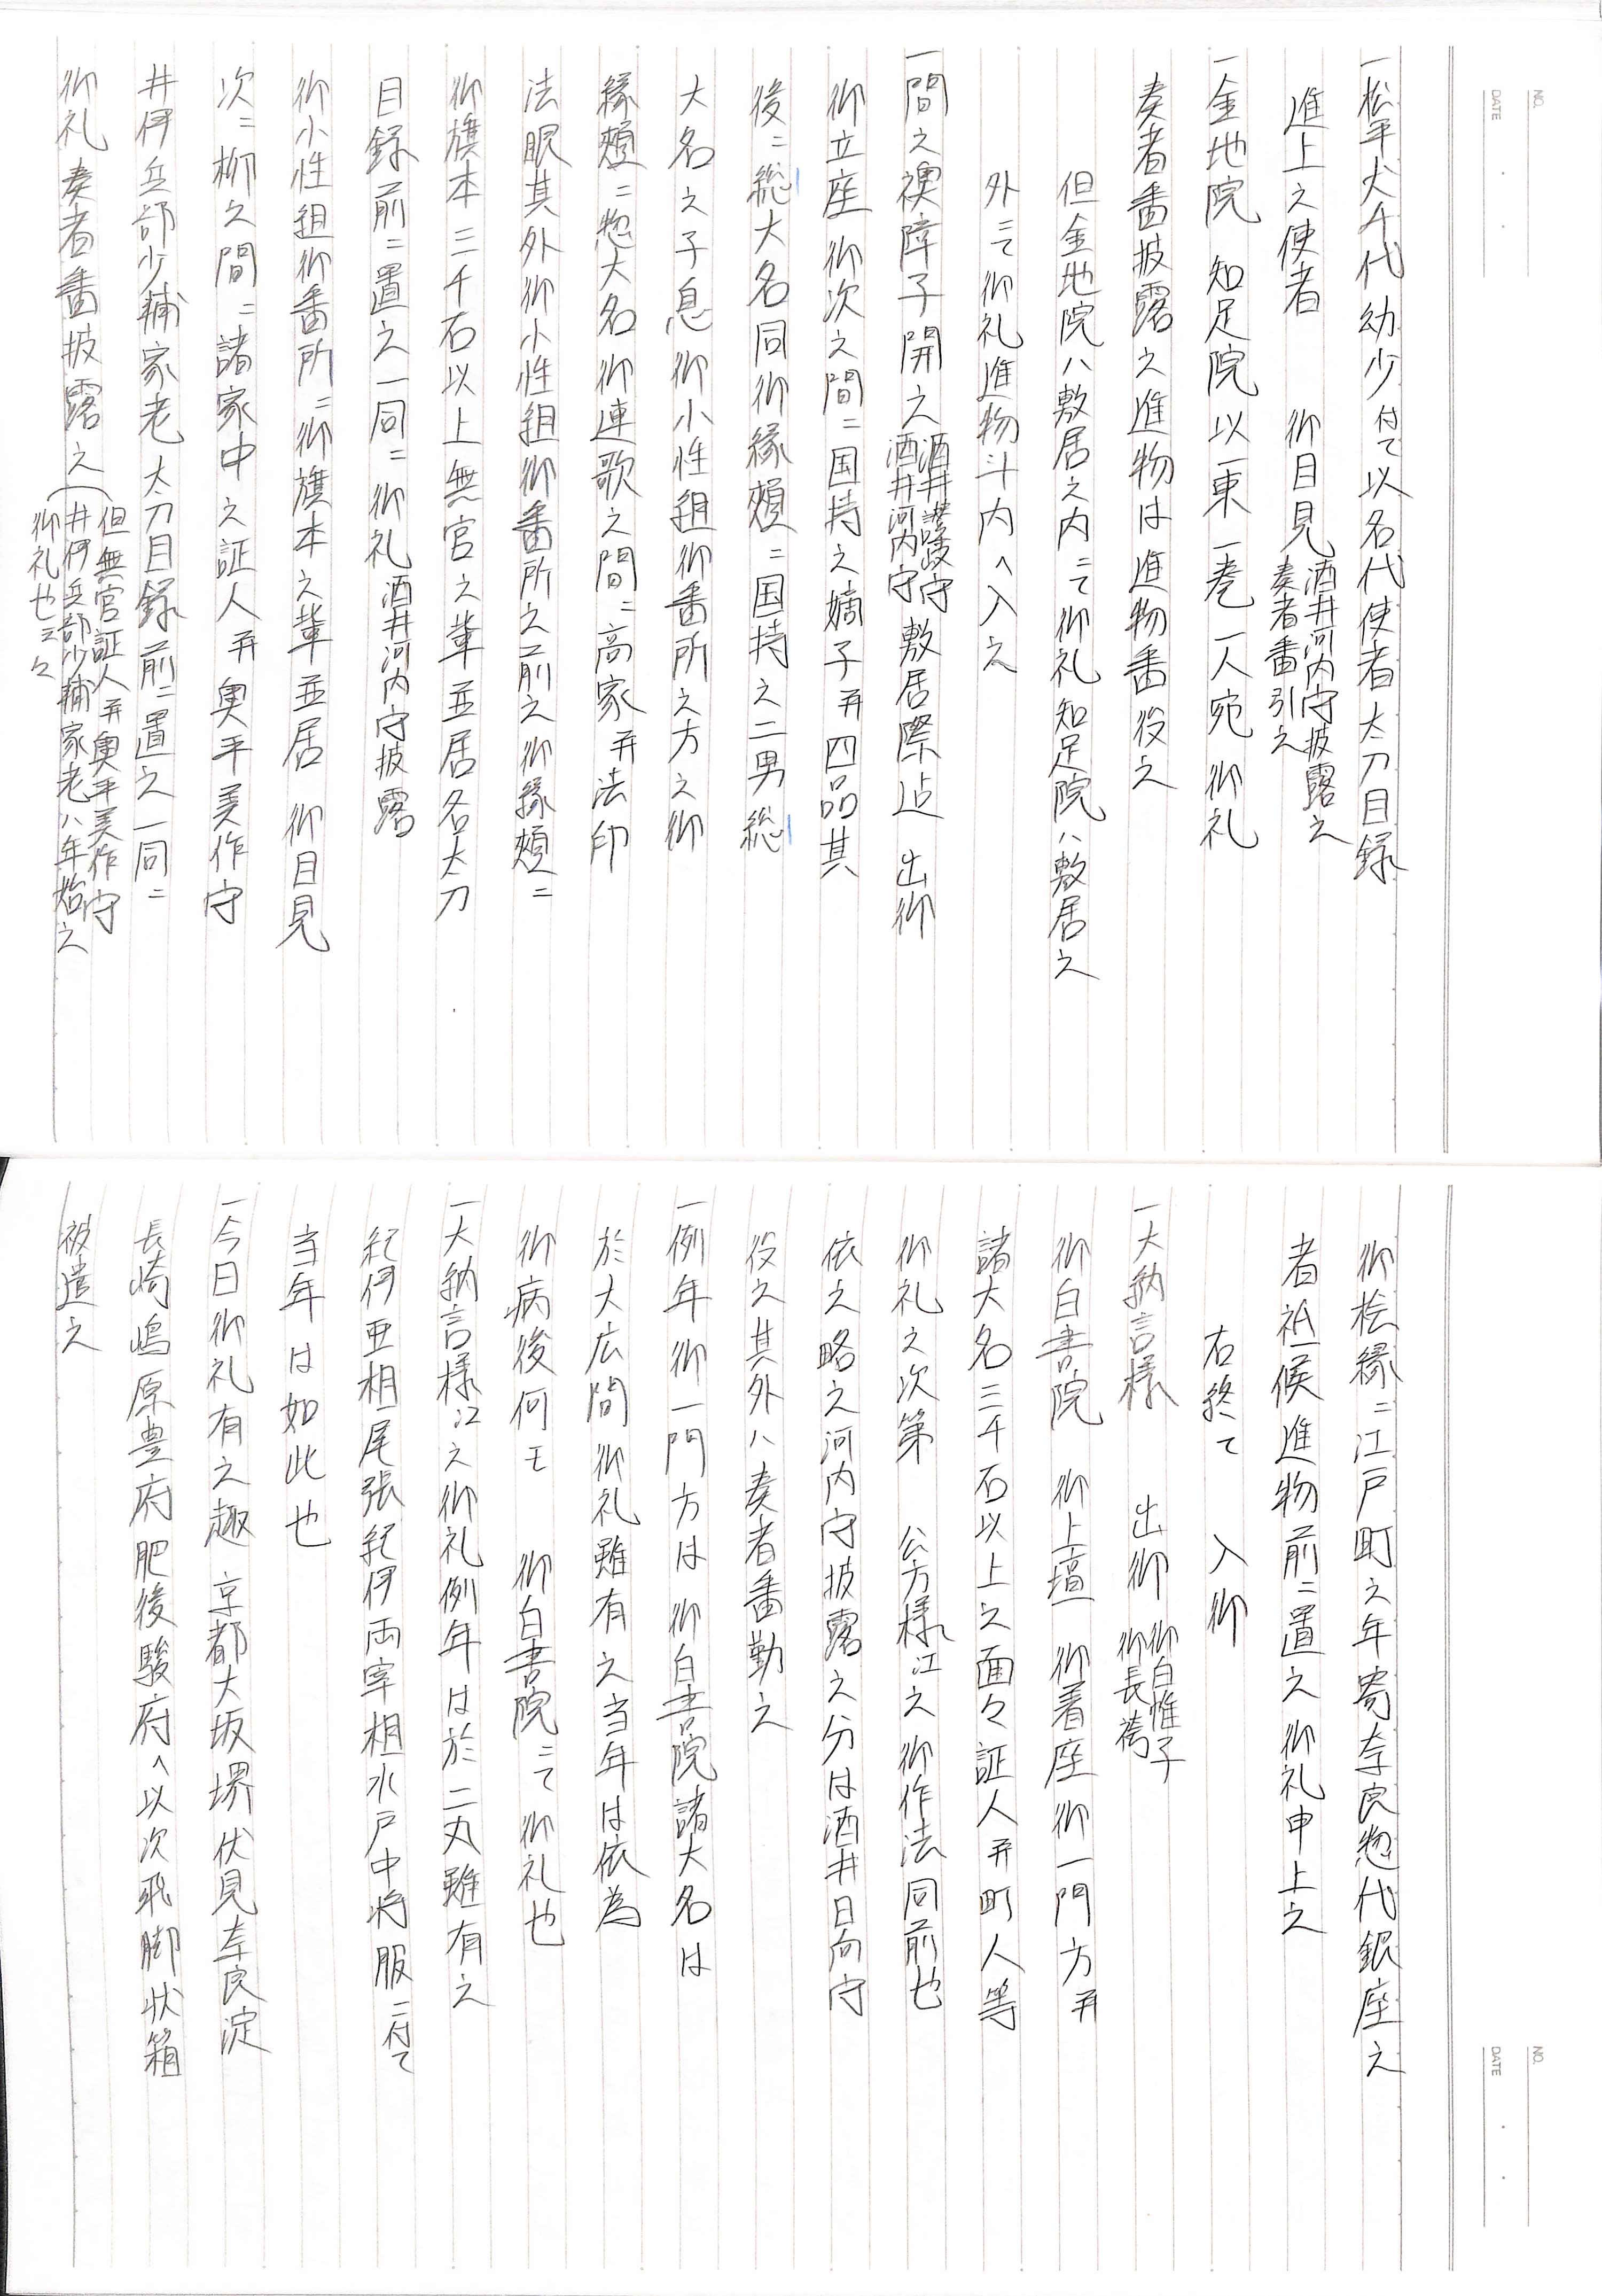 NO.
DATE
一松平犬千代幼少付て以名代使者太刀目録
進上之使者　御目見酒井河内守披露之
奏者番引之
一金地院　知足院以一束一巻一人宛御礼
奏者番披露之進物は進物番役之
但金地院ハ敷居之内ニて御礼知足院ハ敷居之
外ニて御礼進物斗内へ入之
一間之襖障子開之酒井讃岐守
酒井河内守敷居際迠　出御
御立座御次之間ニ国持之嫡子幷四品其
後ニ総大名同御縁頬ニ国持之二男総
大名之子息御小性組御番所之方之御
縁頬ニ惣大名御連歌之間ニ高家幷法印
法眼其外御小性組御番所之前之御縁頬ニ
御旗本三千石以上無官之輩並居名太刀
目録前ニ置之一同ニ御礼酒井河内守披露
御小性組御番所ニ御旗本之輩並居　御目見
次ニ柳之間ニ諸家中之証人幷奥平美作守
井伊兵部少輔家老太刀目録前ニ置之一同ニ
御礼奏者番披露之（但無官証人幷奥平美作守
井伊兵部少輔家老ハ年始之
御礼也云々
NO.
DATE
御桧縁ニ江戸町之年寄奈良惣代銀座之
者祗候進物前ニ置之御礼申上之
右終て　入御
一大納言様　出御　御白帷子
御長袴
御白書院　御上壇　御着座御一門方幷
諸大名三千石以上之面々証人幷町人等
御礼之次第　公方様江之御作法同前也
依之略之河内守披露之分は酒井日向守
役之其外ハ奏者番勤之
一例年御一門方は御白書院諸大名は
於大広間御礼雖有之当年は依為
御病後何モ　御白書院ニて御礼也
一大納言様江之御礼例年は於二丸雖有之
紀伊亜相尾張紀伊両宰相水戸中将服ニ付て
当年は如此也
一今日御礼有之趣京都大坂堺伏見奈良淀
長崎嶋原豊府肥後駿府へ以次飛脚状箱
被遣之